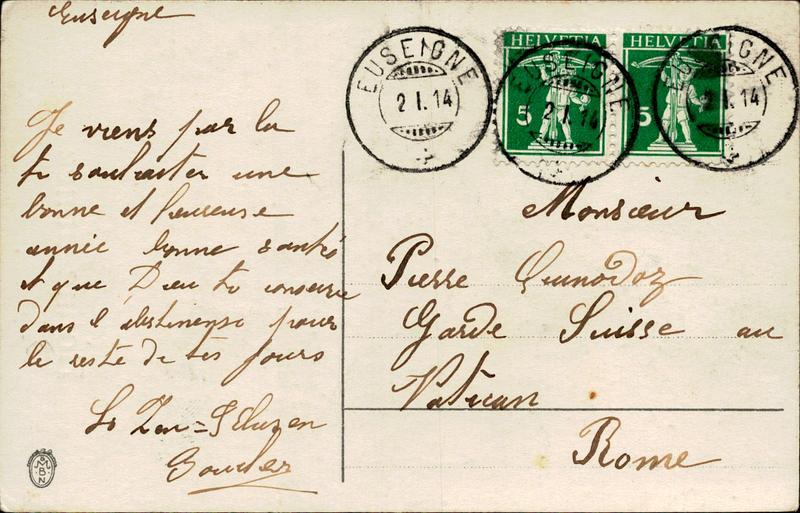 Euseigne
Je viens par la
te souhaiter une
bonne et heureuse
année bonne santé
et que Dieu te conserve
dans l'abstinense pour
le reste de tes jours
EUSEIGNE
2 I. 14
HELVETIA
5
EUSEIGNE
2 I. 14
HELVETIA
5
EUSEIGNE
2 I. 14
Monsieur
Pierre Quinodoz
Garde Suisse au
Vatican
Rome